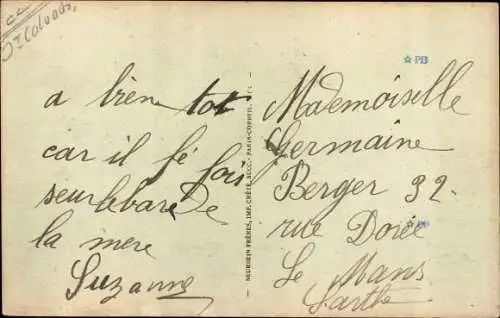 Dt Calvados,
a bien tot
car il fé fois
seur le bare De
la mere
Suzanne
NEURDEIN FRÈRES, IMP. CRÉTÉ, SUCC. PARIS-CORBEIL
☆ PD
Mademoiselle
Germaine
Berger 92.
rue Dorée
☆ PD
Le Mans
Sarthe